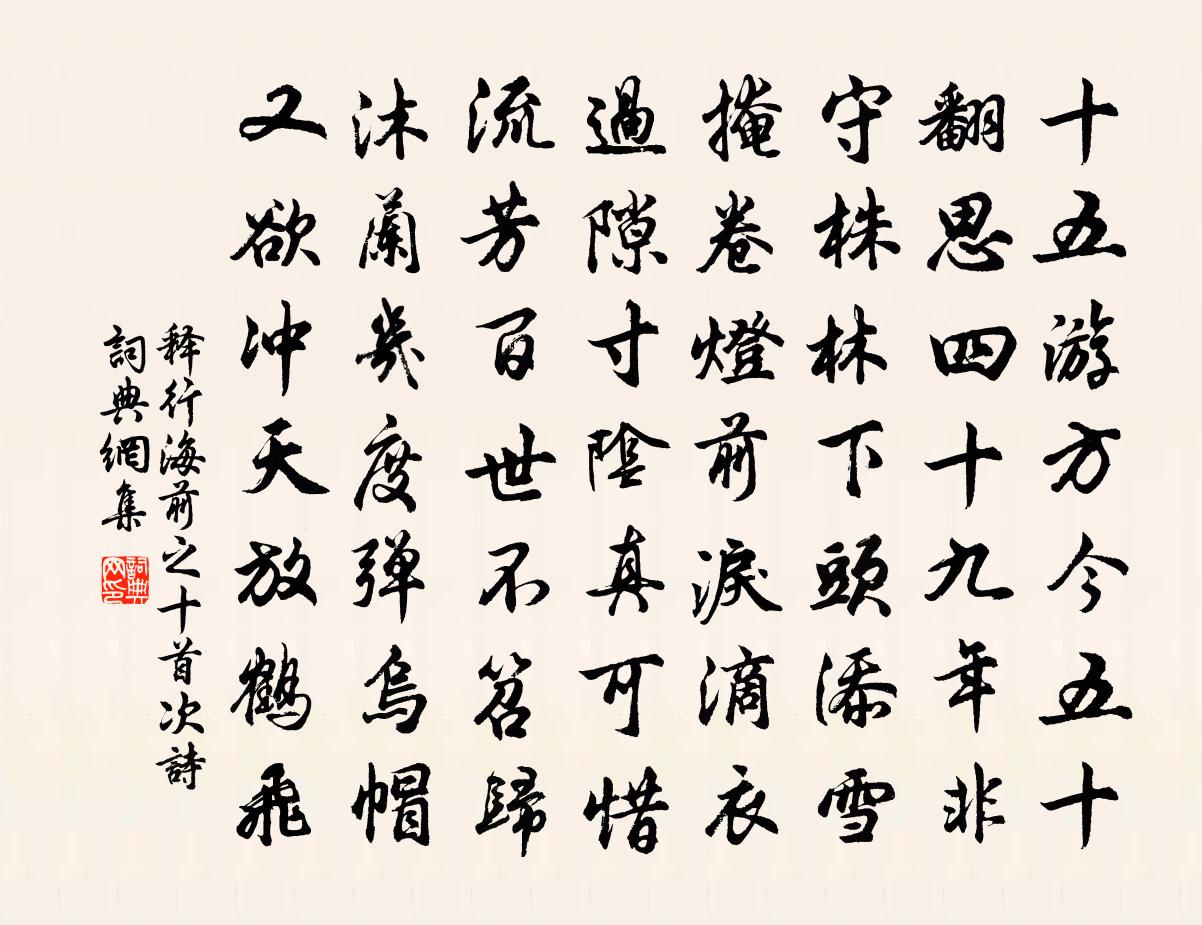 十五游方今五十
翻思四十九年非
守株林下頭添雪
掩卷燈前淚滴衣
過隙寸陰真可惜
流芳百世不苕歸
沐蘭幾度彈烏帽
又欲冲天放鶴飛
释行海前之十首次詩
詞典網集
詞典网印